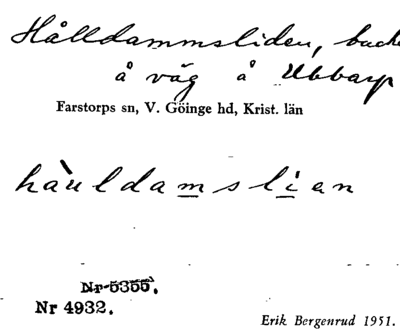 Hålldammsliden, backe
å väg å Ubbarp
Farstorps sn, V. Göinge hd, Krist. län
hàuldamslian
Nr 5355.
Nr 4932.
Erik Bergenrud 1951.